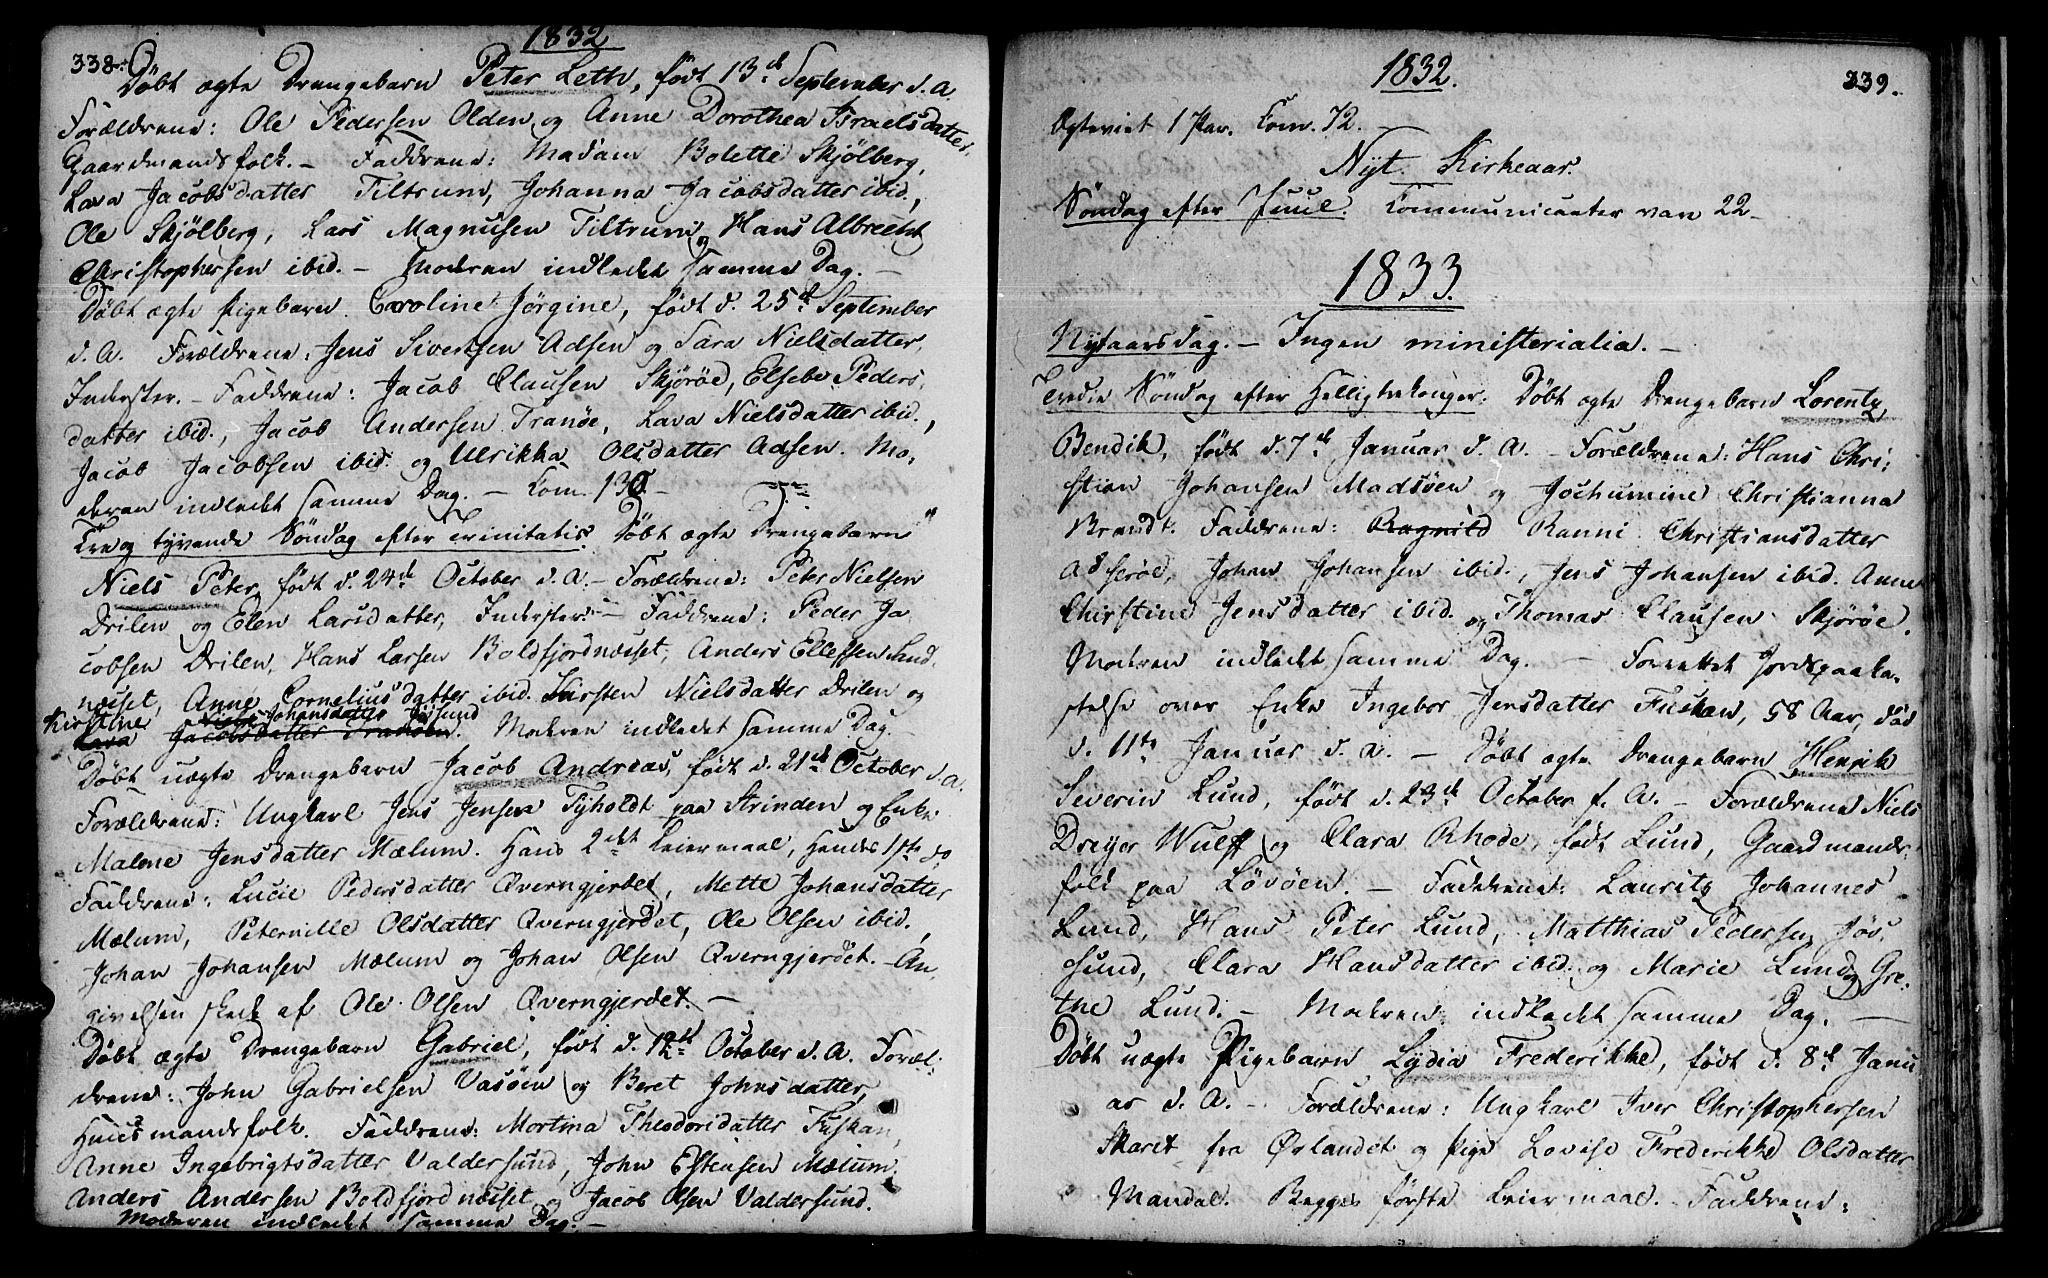 338.
1832
Døbt ægte Drengebarn Peter Leth, født 13de September d. A.
Forældrene: Ole Pedersen Olden og Anne Dorothea Israelsdatter
Gaardmandsfolk. – Faddrene: Madam Bolette Skjølberg,
Lava Jacobsdatter Tiltrum, Johanna Jacobsdatter ibid.,
Ole Skjølberg, Lars Magnusen Tiltrum og Hans Albrecht
Christophersen ibid. – Moderen indledet samme Dag. –
Døbt ægte Pigebarn Caroline Jörgine, født d. 25de September
d. A. Forældrene: Jens Sivertsen Adsen og Sara Nielsdatter,
Inderster. – Faddrene: Jacob Clausen Skjørøe, Elsebe Peders,
datter ibid., Jacob Andersen Tranöe, Lava Nielsdatter ibid.,
Jacob Jacobsen ibid. og Ulrikka Olsdatter Adsen. Mo,
deren indledet samme Dag. – Com. 130. –
Tre og tyvende Søndag efter Trinitatis. Døbt ægte Drengebarn
Niels Peter, født d. 24de October d. A. – Forældrene: Peter Nielsen
Drilen og Elen Larsdatter, Inderster. – Faddrene: Peder Ja
cobsen Drilen, Hans Larsen Boldfjordnæsset, Anders Ellefsen Sund,
næsset, Anne Cornelius datter ibid. Kirsten Nielsdatter Drilen og
Kirstine Johansdatter Jøssund
Lava Jacobsdatter Tranöen. Moderen indledet samme Dag.
Døbt uægte Drengebarn Jacob Andreas, født d. 21de October d. A.
Forældrene: Ungkarl Jens Jensen Tyholdt paa Strinden og Enke
Malene Jensdatter Mælum. Hans 2det Leiermaal, Hendes 1ste do
Faddrene: Lucie Pedersdatter Qverngjerdet, Mette Johansdatter
Mælum, Peternille Olsdatter Qverngjerdet, Ole Olsen ibid.,
Johan Johansen Mælum og Johan Olsen Qverngjerdet. – An,
givelsen skede af Ole Olsen Qverngjerdet. –
Døbt ægte Drengebarn Gabriel, født d. 12te October d. A. Foræl:
drene: John Gabrielsen Vasøen og Beret Johnsdatter,
Huusmandsfolk. Faddrene: Mortina Theodorsdatter Fuskan,
Anne Ingebrigtsdatter Valdersund, John Estensen Mælum,
Anders Andersen Boldfjordnæsset og Jacob Olsen Valdersund.
Moderen indledet samme Dag. –
1832.
339.
Egteviet 1 Par. Com. 72.
Nyt Kirkeaar.
Søndag efter Juul. Communicanter vare 22 –
1833.
Nytaarsdag. – Ingen ministerialia. –
Tredie Søndag efter Hellig trekonger. Døbt ægte Drengebarn Lorentz
Bendik, født d. 7de Januar d. A. – Forældrene: Hans Chri:
stian Johansen Madsöen og Jochumine Christianna
Brandt. Faddrene: Ragnild Ranni Christiansdatter
Adserøe, Johan Johansen ibid., Jens Johansen ibid. Anne
Chirstine Jensdatter ibid. og Thomas Clausen Skjørøe.
Moderen indledet samme Dag. – Forrettet Jordspaaka,
stelse over Enke Ingebor Jensdatter Fuskan, 58 Aar, død
d. 11te Januar d. A. – Døbt ægte Drengebarn Henrik
Severin Lund, født d. 23de October f. A. – Forældrene Niels
Dreyer Wulff og Clara Rhode, født Lund, Gaardmands,
folk paa Løvøen. – Faddrene: Lauritz Johannes
Lund, Hans Peter Lund, Matthias Pedersen Jøs,
sund, Clara Hansdatter ibid. og Marie Lund og Gre,
the Lund. – Moderen indledet samme Dag. –
Døbt uægte Pigebarn Lydia Frederikke, født d. 8de Janu
ar d. A. – Forældrene: Ungkarl Iver Christophersen
Skaret fra Ørlandet og Pige Lovise Frederikke Olsdatter
Mandal. Begges første Leiermaal. Faddrene: